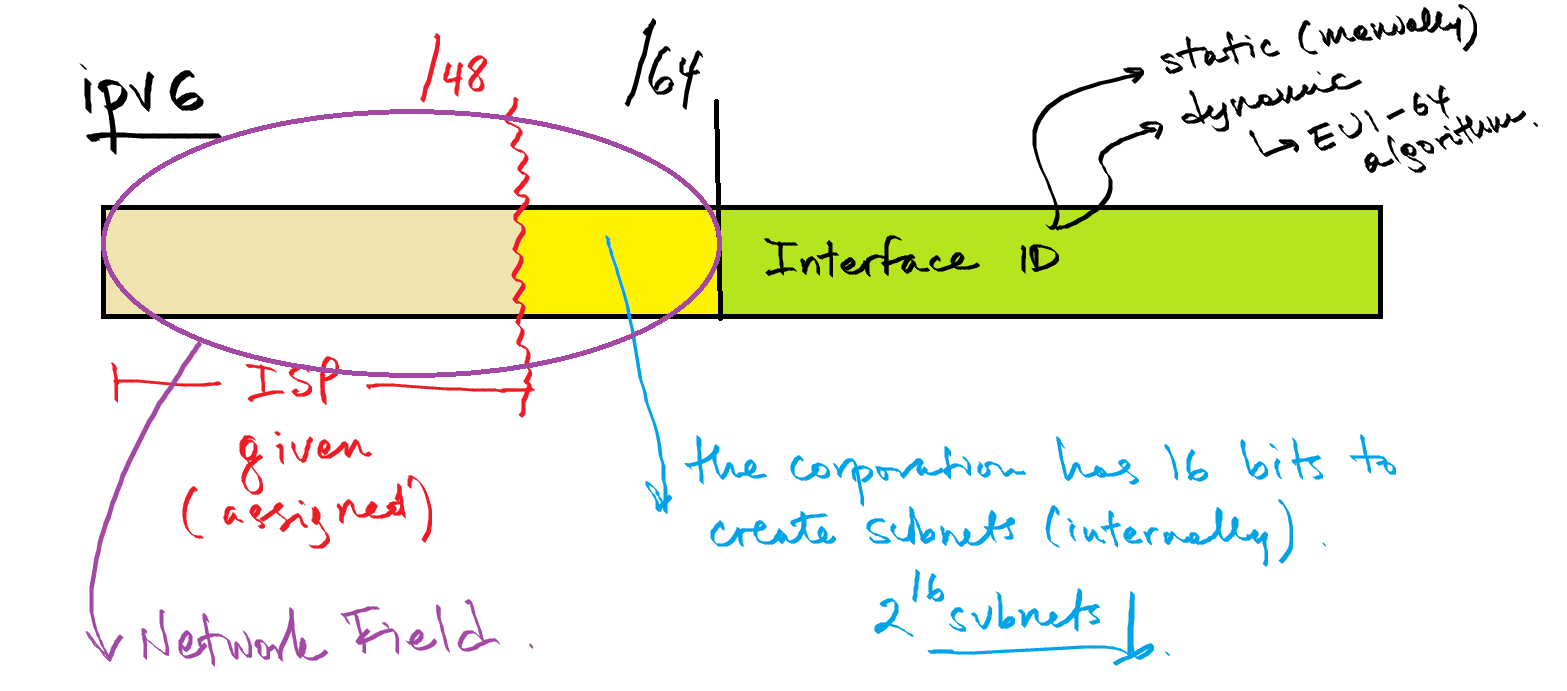 ipv6
/48
/64
static (manually)
dynamic
↳ EUI-64
algorithm.
Interface ID
ISP
given
(assigned)
the corporation has 16 bits to
create subnets (internally).
2^16 subnets
Network Field.